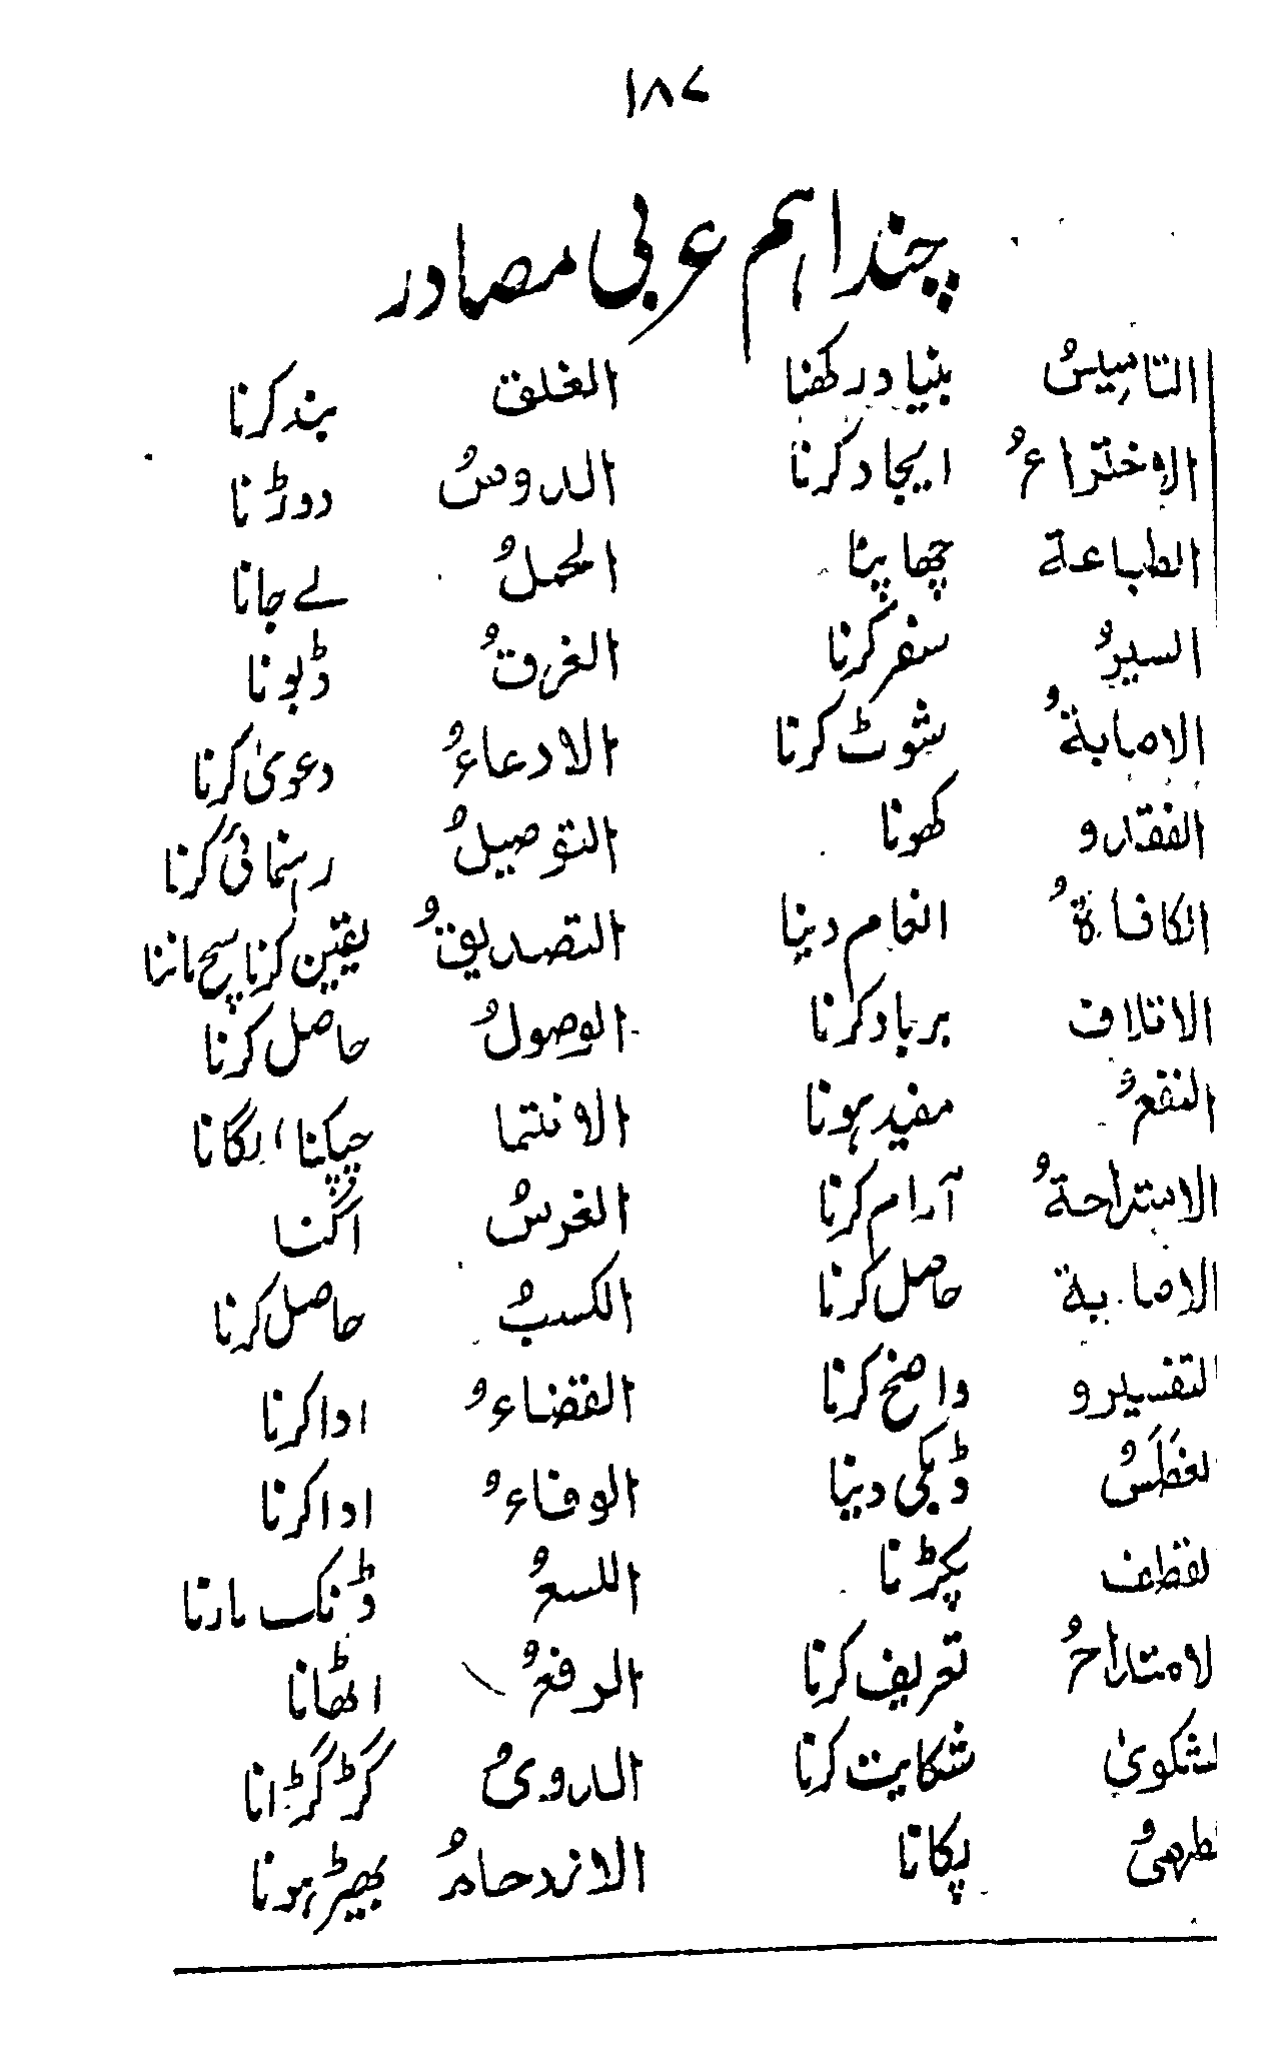 ۱۸۷
چند اہم عربی مصادر
التاسیسُ بنیاد رکھنا الغلق بند کرنا
الاختراعُ ایجاد کرنا الدوسُ دوڑنا
الطباعة چھاپنا الحملُ لے جانا
السیرُ سفر کرنا الغرقُ ڈبونا
الاصابةُ شوٹ کرنا الادعاءُ دعویٰ کرنا
الفقدرو کھونا التوصیلُ رہنمائی کرنا
الکافاةُ انعام دینا التصدیقُ یقین کرنا سچ ماننا
الاتلاف برباد کرنا الوصولُ حاصل کرنا
النفعُ مفید ہونا الانتما چپکنا، لگانا
الاستراحةُ آرام کرنا الغرسُ اگنا
الاصابة حاصل کرنا الکسبُ حاصل کرنا
التفسیرو واضح کرنا القضاءُ ادا کرنا
لغَطَسُ ڈبکی دینا الوفاءُ ادا کرنا
لقطف پکڑنا اللسعُ ڈنک مارنا
لامتداحُ تعریف کرنا الرفعُ اٹھانا
لشکویٰ شکایت کرنا الدویُ گڑگڑانا
لطہیُ پکانا الازدحامُ بھیڑ ہونا